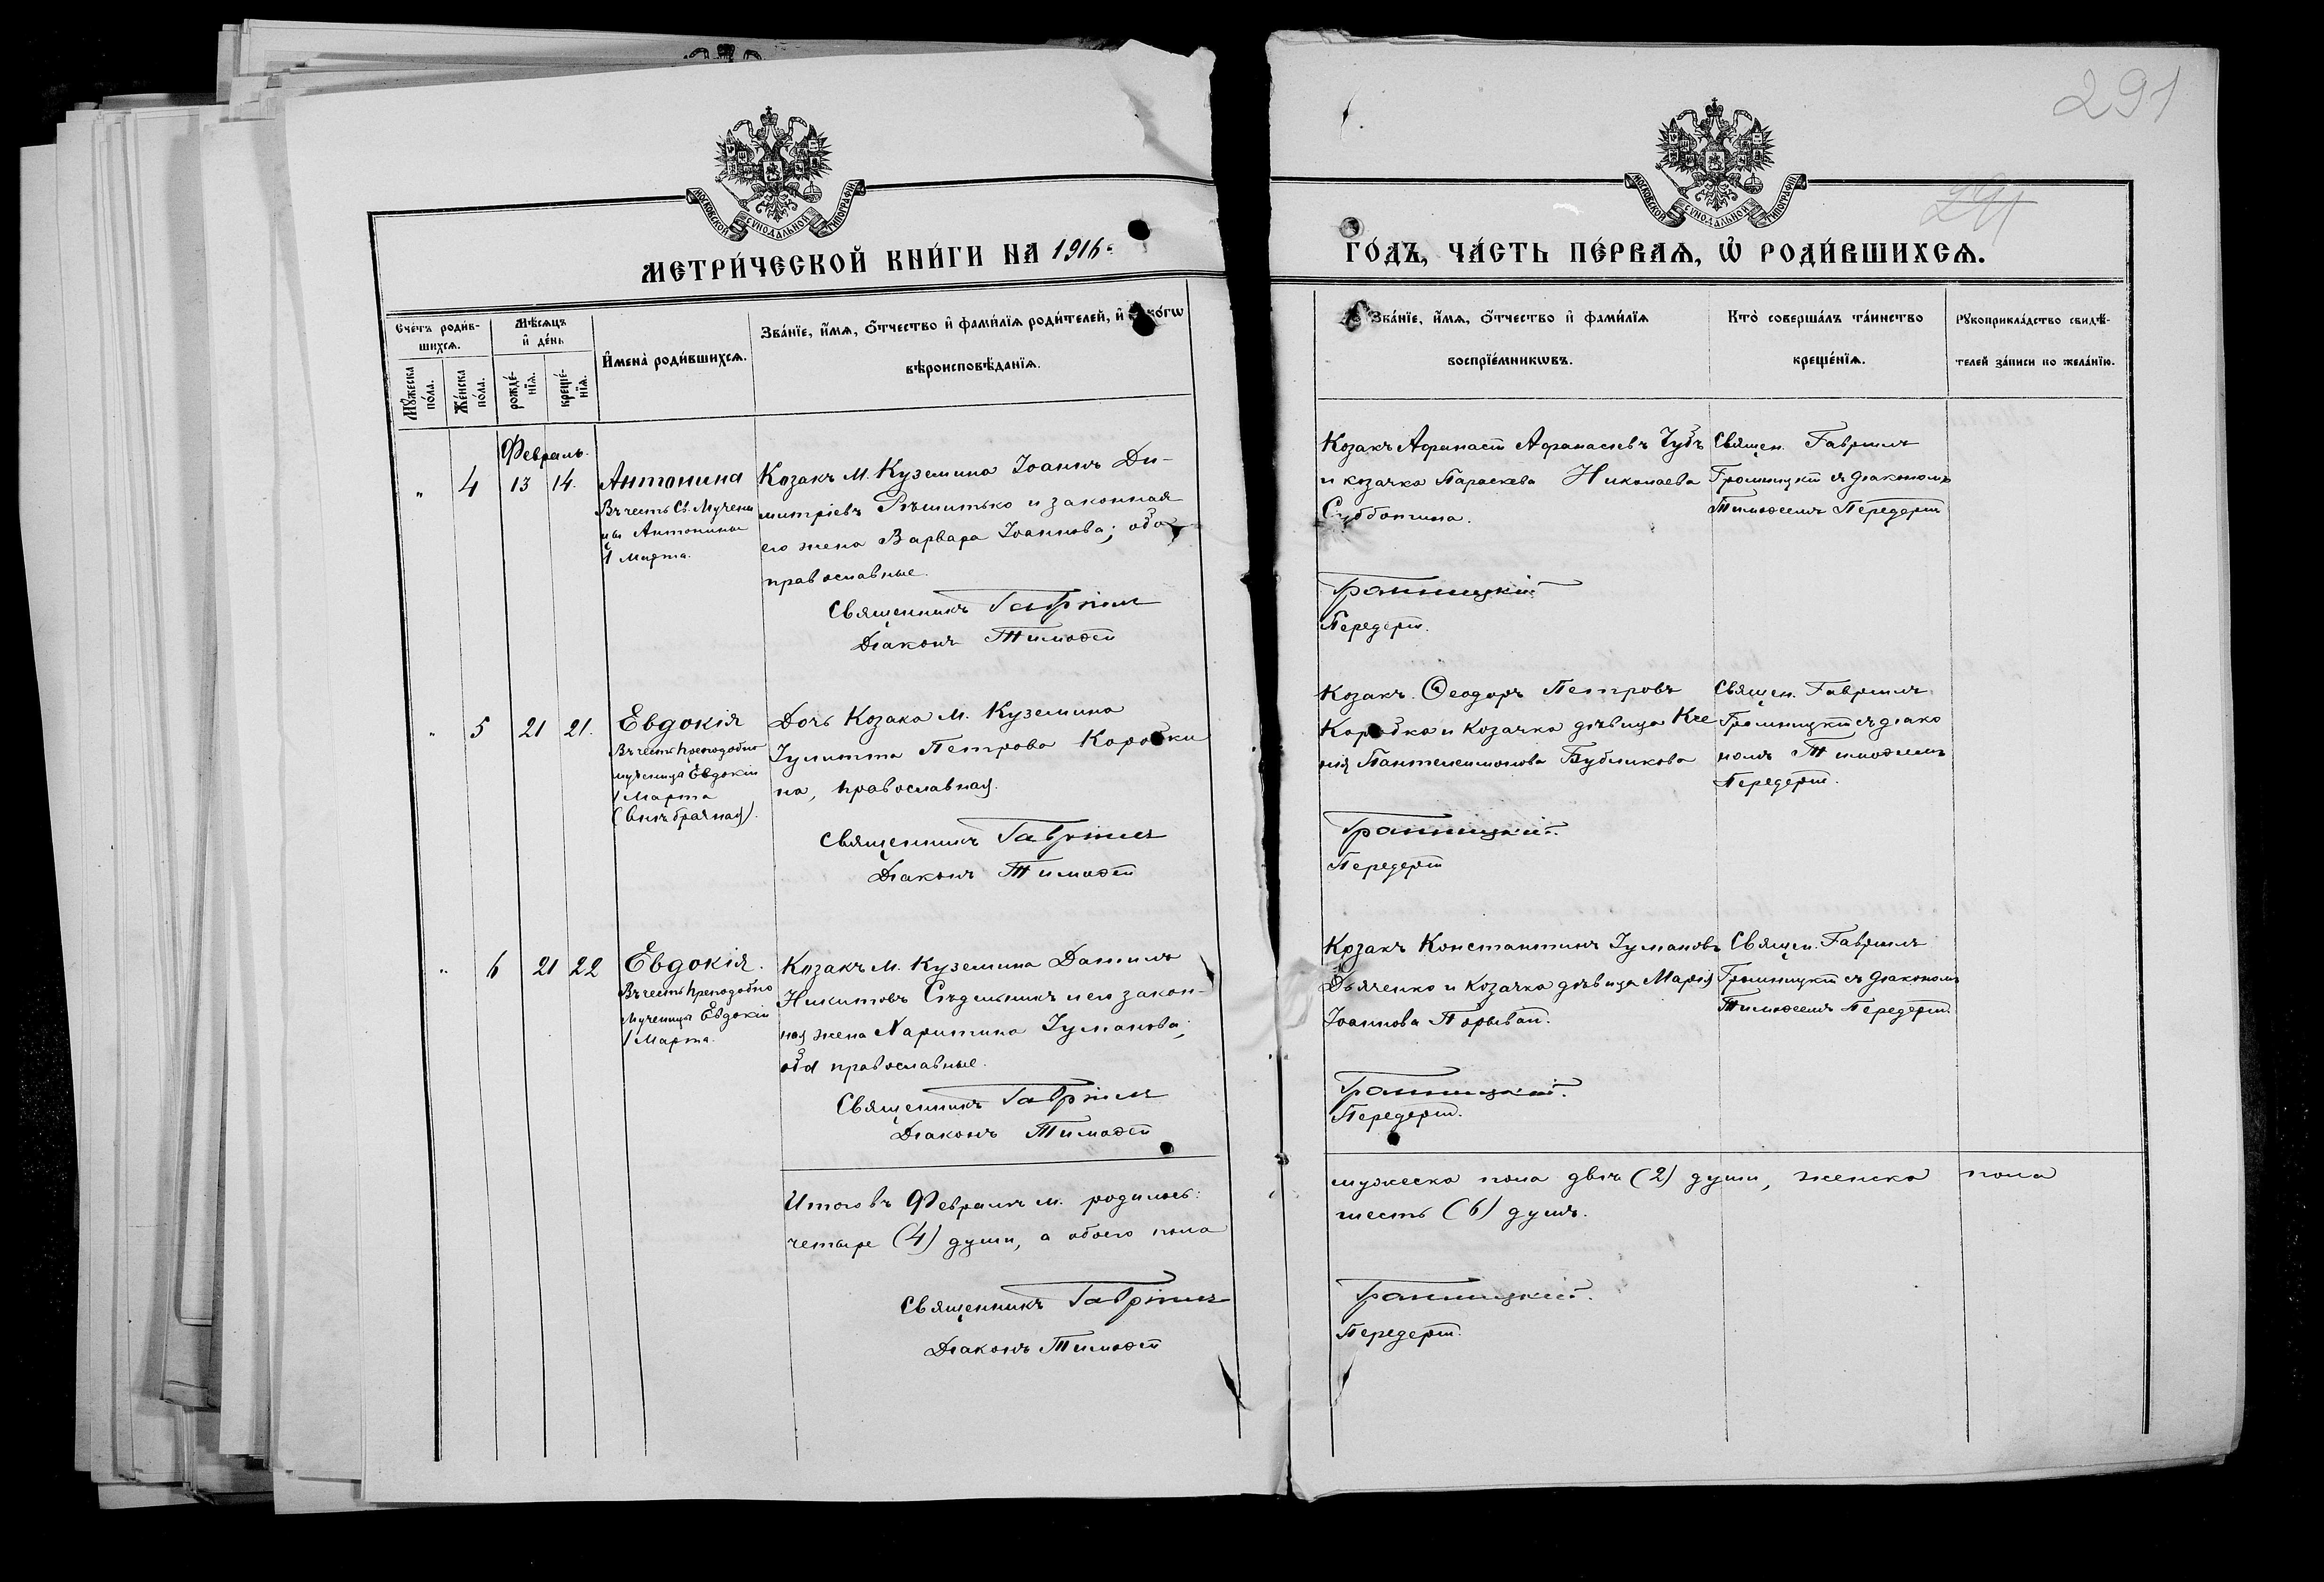 291
291
МОСКОВСКОЙ СѴНОДАЛЬНОЙ ТИПОГРАФІИ
МОСКОВСКОЙ СѴНОДАЛЬНОЙ ТИПОГРАФІИ
МЕТРИ́ЧЕСКОЙ КНИ́ГИ НА 1916
ГО́ДЪ, ЧА́СТЬ ПЕ́РВАѦ, Ѡ҆ РОДИ́ВШИХСѦ.
Сче́тъ роди́в-
шихсѧ.
Мꙋ́жеска по́ла.
Же́нска по́ла.
Мѣ́сѧцъ
и҆ де́нь
рожде́-
нїѧ.
креще́-
нїѧ.
И҆мена̀ роди́вшихсѧ.
Зва́нїе, и҆́мѧ, ѻ҆́тчество и҆ фами́лїѧ роди́телей, и҆ ко́гѡ
вѣроисповѣ́данїѧ.
Зва́нїе, и҆́мѧ, ѻ҆́тчество и҆ фами́лїѧ
воспрїе́мникѡвъ.
Кто̀ соверша́лъ та́инство
креще́нїѧ.
Рꙋкоприкла́дство свидѣ́-
телей за́писи по жела́нїю.
Февраль.
" 4 13 14. Антонина
Въ честь Св. Мучени
цы Антонины
1 Марта.
Козакъ М. Куземина Іоаннъ Ди-
митріевъ Рѣшитько и законная
его жена Варвара Іоаннова; оба
православные.
Священникъ Гавріилъ
Діаконъ Тимоѳей
Козакъ Афанасій Афанасіевъ Чубъ
и козачка Параскева Николаева
Субботина.
Священ. Гавріилъ
Граминицкій съ діакономъ
Тимоѳеемъ Передерій
Граминицкій
Передерій.
" 5 21 21. Евдокія
Въ честь преподобно
мученицы Евдокіи
1 Марта
(внѣбрачная).
Дочь Козака М. Куземина
Іулитта Петрова Коробки
на, православная.
Священникъ Гавріилъ
Діаконъ Тимоѳей
Козакъ Ѳеодоръ Петровъ
Коробка и Козачка дѣвица Ксе
нія Пантелеимонова Бубликова
Священ. Гавріилъ
Граминицкій съ діако
номъ Тимоѳеемъ
Передерій.
Граминицкій.
Передерій
" 6 21 22 Евдокія.
Въ честь преподобно
мученицы Евдокіи
1 Марта.
Козакъ М. Куземина Даніилъ
Никитовъ Сѣдельникъ и его закон-
ная жена Харитина Іуліанова;
оба православные.
Священникъ Гавріилъ
Діаконъ Тимоѳей
Козакъ Константинъ Іуліановъ
Дьяченко и Козачка дѣвица Марія
Іоаннова Порывай.
Священ. Гавріилъ
Граминицкій съ діакономъ
Тимоѳеемъ Передерій.
Граминицкій.
Передерій.
Итого въ Февралѣ м. родилось:
четыре (4) души, а обоего пола
мужеска пола двѣ (2) души, женска пола
шесть (6) душъ.
Священникъ Гавріилъ
Діаконъ Тимоѳей
Граминицкій.
Передерій.